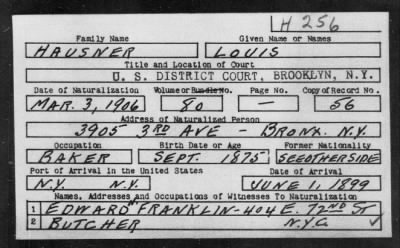 H 256
Family Name Given Name or Names
HAUSNER LOUIS
Title and Location of Court
U. S. DISTRICT COURT, BROOKLYN, N.Y.
Date of Naturalization Volume or Bundle No. Page No. Copy of Record No.
MAR. 3, 1906 80 — 56
Address of Naturalized Person
3905 3RD AVE – BRONX. N.Y.
Occupation Birth Date or Age Former Nationality
BAKER SEPT. 1875 SEEOTHERSIDE
Port of Arrival in the United States Date of Arrival
N.Y. N.Y. JUNE 1, 1899
Names, Addresses and Occupations of Witnesses To Naturalization
1 EDWARD FRANKLIN - 404 E. 72ND ST
2 BUTCHER " N.Y.C. ✓